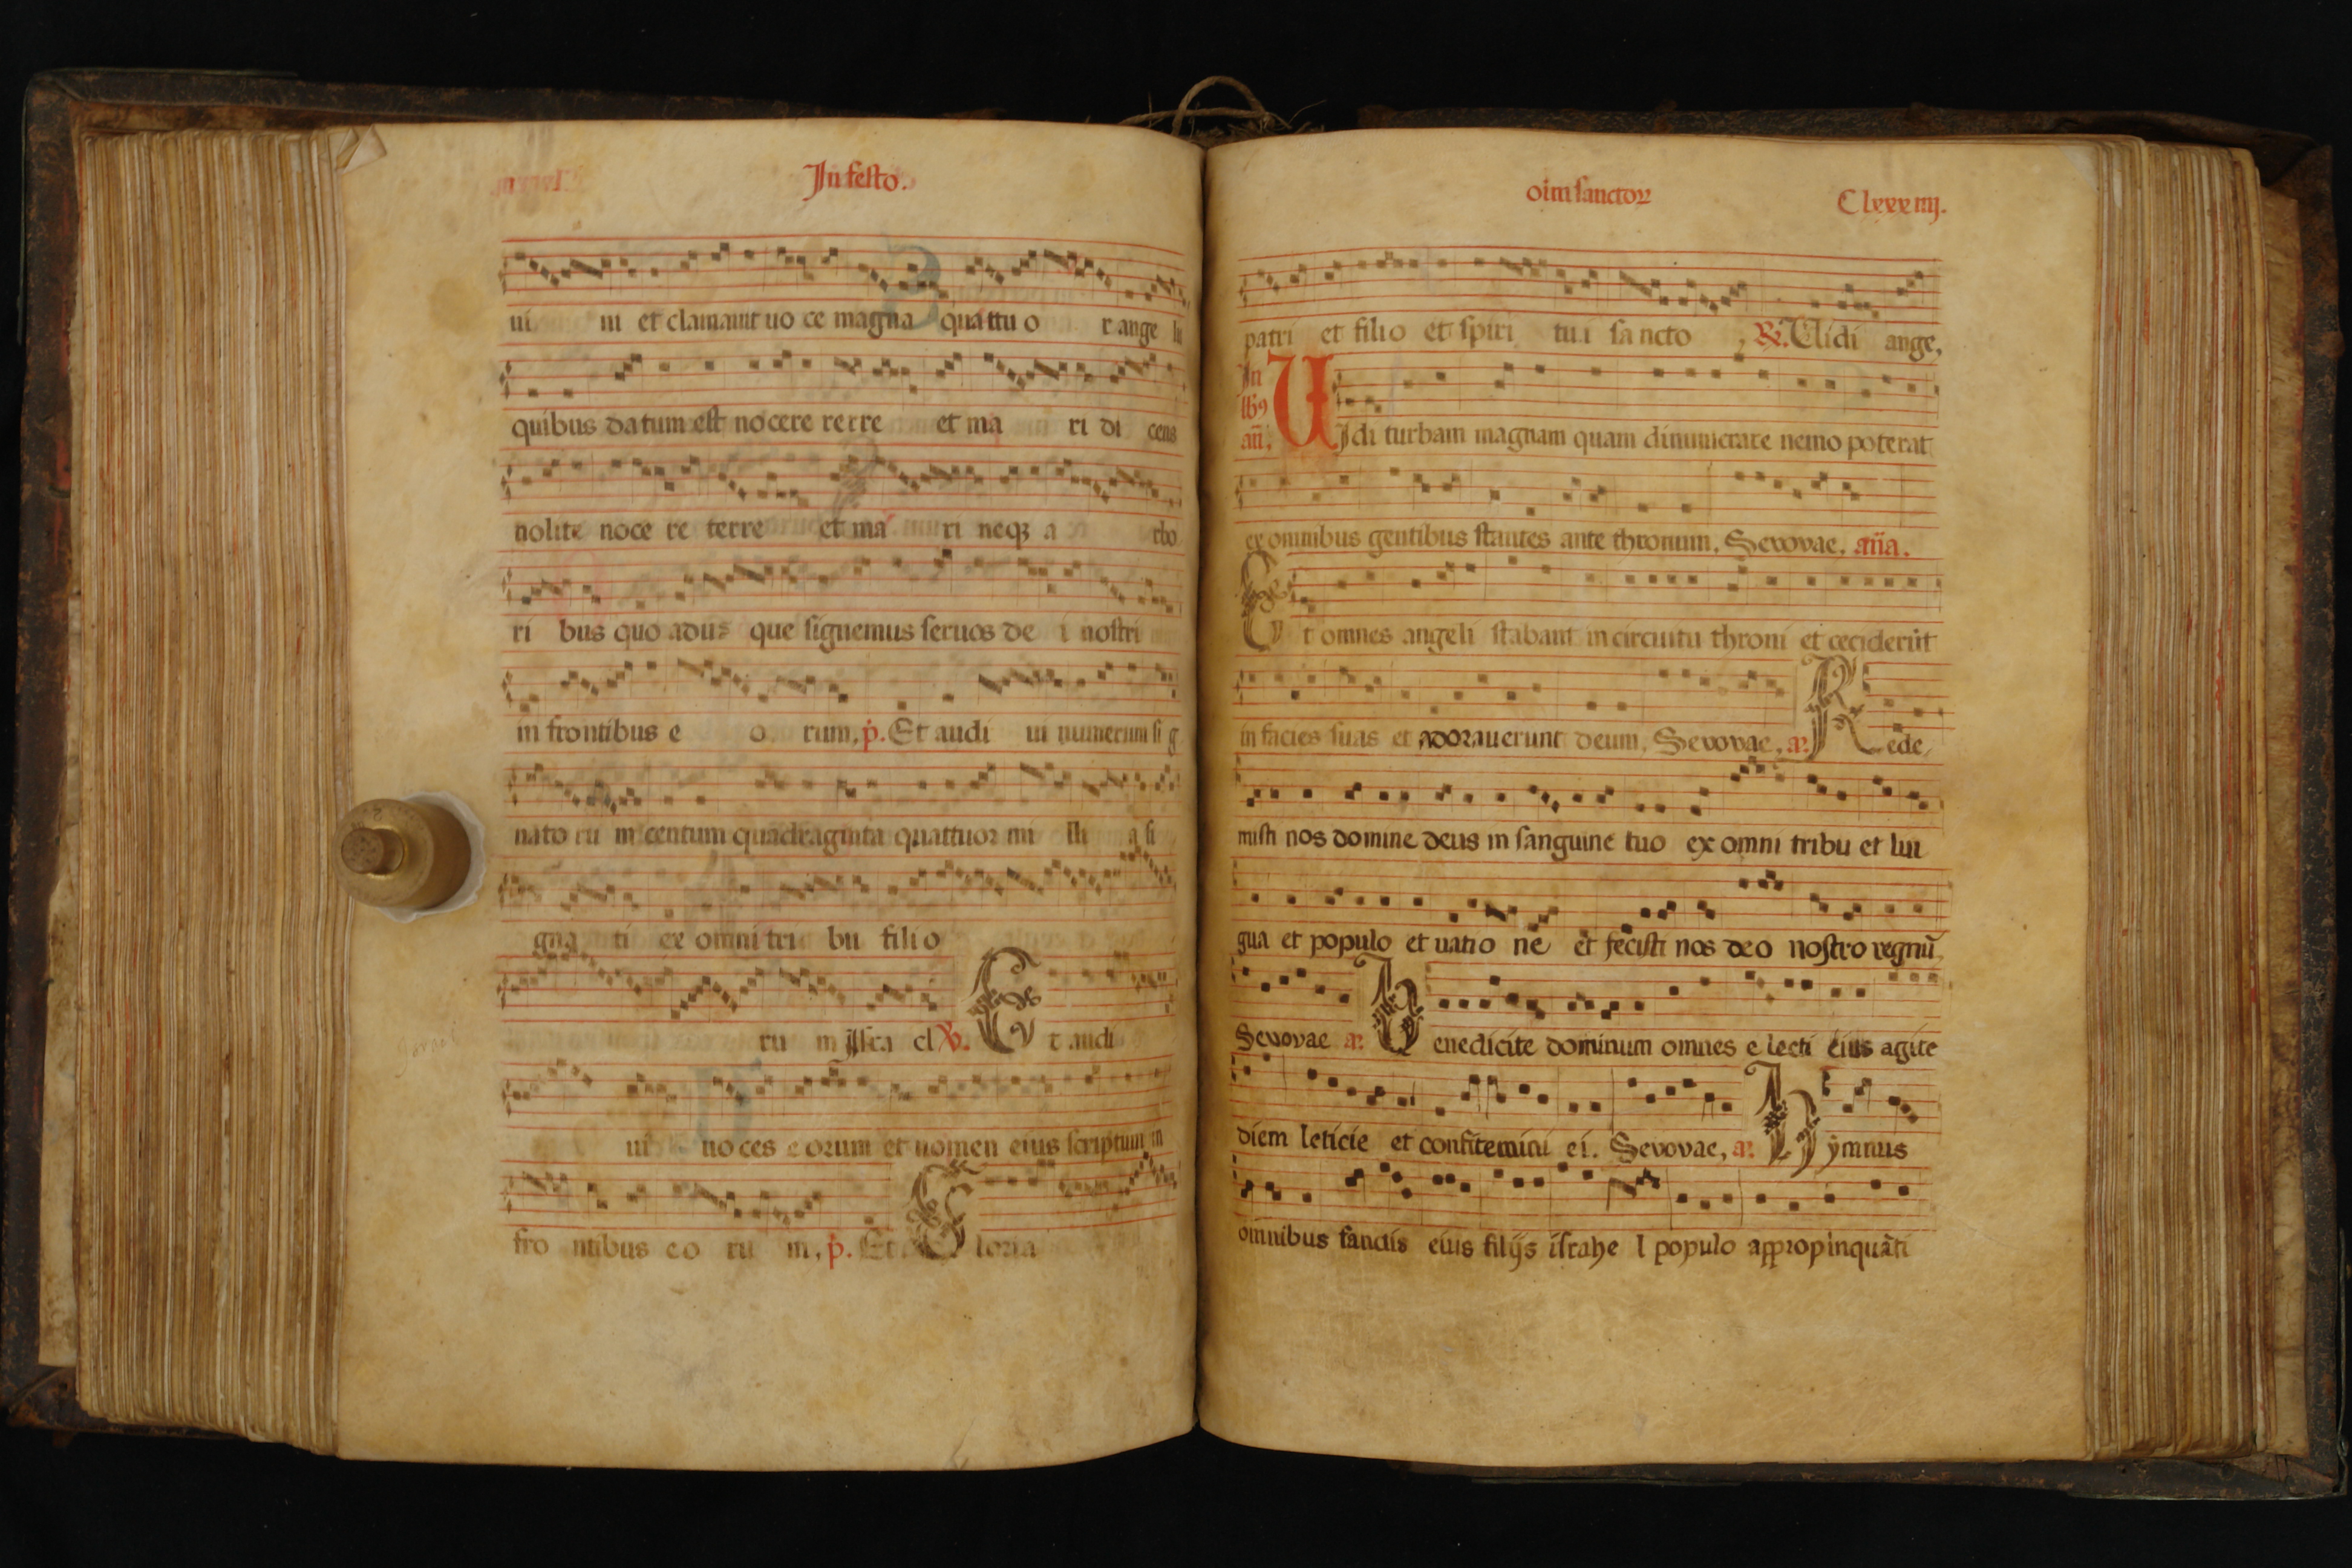 In festo.
ui m et clamauit uo ce magna quattuo r ange li
quibus datum est nocere terre et ma ri di cens
nolite noce re terre et ma ri neqꝫ a rbo
ri bus quo adus que signemus seruos de i nostri
in frontibus e o rum, p̄. Et audi ui numerum si g
nato ru m centum quadraginta quattuor mi lli a si
gna ti ex omni tri bu filio
ru m Isra el ℣. Et audi
ui uo ces e orum et nomen eius scriptum in
fro ntibus eo ru m, p̄. Et Gloria
oim sanctoꝝ Clxxxiiij.
patri et filio et spiri tui sa ncto, ℟. Uidi ange,
In
lbꝰ
an̄. UIdi turbam magnam quam dinumerare nemo poterat
ex omnibus gentibus stantes ante thronum, Sevovae, an̄a.
Et omnes angeli stabant in circuitu throni et ceciderūt
in facies suas et adorauerunt deum, Sevovae, a. Rede,
misti nos domine deus in sanguine tuo ex omni tribu et lin
gua et populo et natio ne et fecisti nos deo nostro regnū,
Sevovae a. Benedicite dominum omnes e lecti eius agite
diem leticie et confitemini ei. Sevovae, a. Hymnus
omnibus sanctis eius filijs israhe l populo appropinquāti